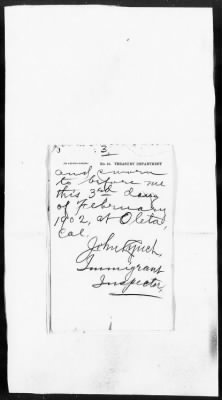 3
No. 10. TREASURY DEPARTMENT
and sworn
to before me
this 3rd day
of February
1902, at Oleta,
Cal.
John Lynch
Immigrant
Inspector